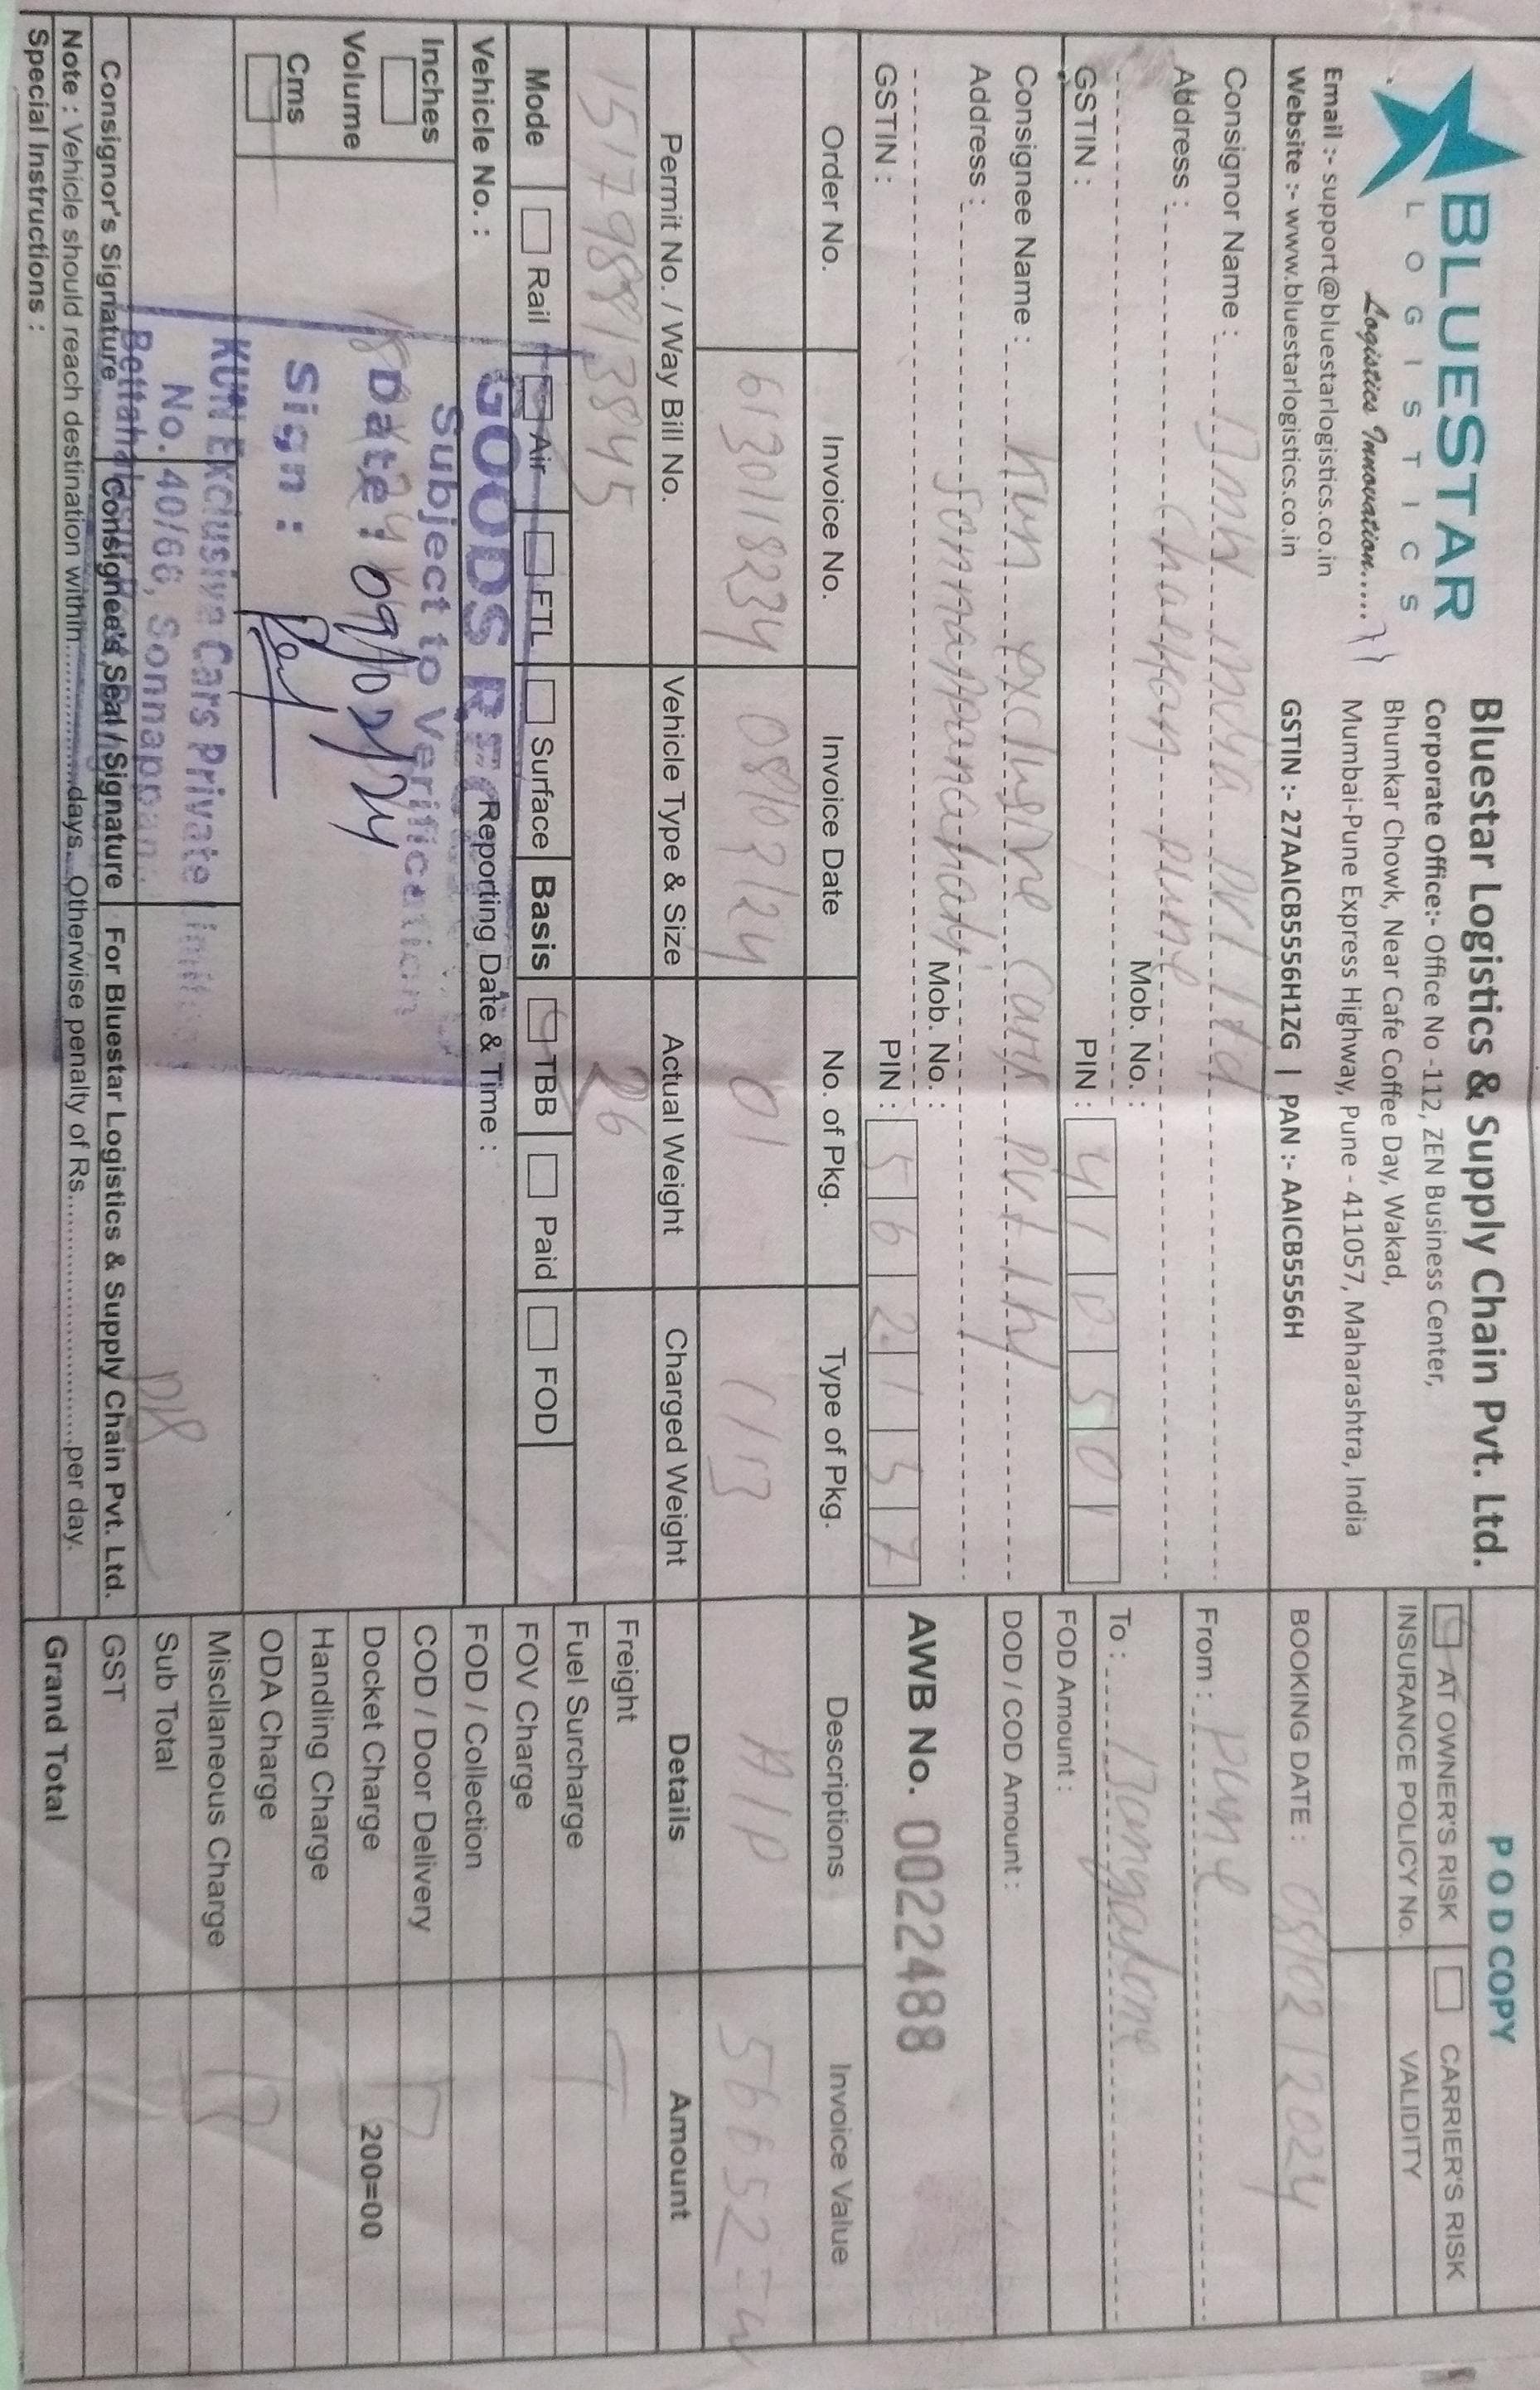 BLUESTAR
LOGISTICS
Logistics Innovation.....
Email :- support@bluestarlogistics.co.in
Website :- www.bluestarlogistics.co.in
Bluestar Logistics & Supply Chain Pvt. Ltd.
Corporate Office:- Office No -112, ZEN Business Center,
Bhumkar Chowk, Near Cafe Coffee Day, Wakad,
Mumbai-Pune Express Highway, Pune - 411057, Maharashtra, India
GSTIN :- 27AAICB5556H1ZG | PAN :- AAICB5556H
POD COPY
AT OWNER'S RISK CARRIER'S RISK
INSURANCE POLICY No. VALIDITY
BOOKING DATE : 08/02/2024
Consignor Name : BMW India pvt ltd
Address : pune
Mob. No. :
GSTIN : PIN : 410501
From : pune
To : Bangalore
FOD Amount :
DOD / COD Amount :
Consignee Name : Kun exclusive cars pvt
Address :
Mob. No. :
GSTIN : PIN : 562157
AWB No. 0022488
Order No. Invoice No. Invoice Date No. of Pkg. Type of Pkg. Descriptions Invoice Value
6130118234 08/02/24 01 A/P
Permit No. / Way Bill No. Vehicle Type & Size Actual Weight Charged Weight Details Amount
151798813845 26
Freight
Fuel Surcharge
FOV Charge
FOD / Collection
COD / Door Delivery
Docket Charge 200=00
Handling Charge
ODA Charge
Miscllaneous Charge
Sub Total
GST
Grand Total
Mode Rail Air FTL Surface Basis TBB Paid FOD
Vehicle No. : Reporting Date & Time :
Inches
Volume
Cms
GOODS
Subject to Verification
Date : 09/02/24
Sign :
KUN Exclusive Cars Private Limited
No. 40/66,
Consignor's Signature Consignee's Seal / Signature For Bluestar Logistics & Supply Chain Pvt. Ltd.
Note : Vehicle should reach destination within................days. Otherwise penalty of Rs............................per day.
Special Instructions :